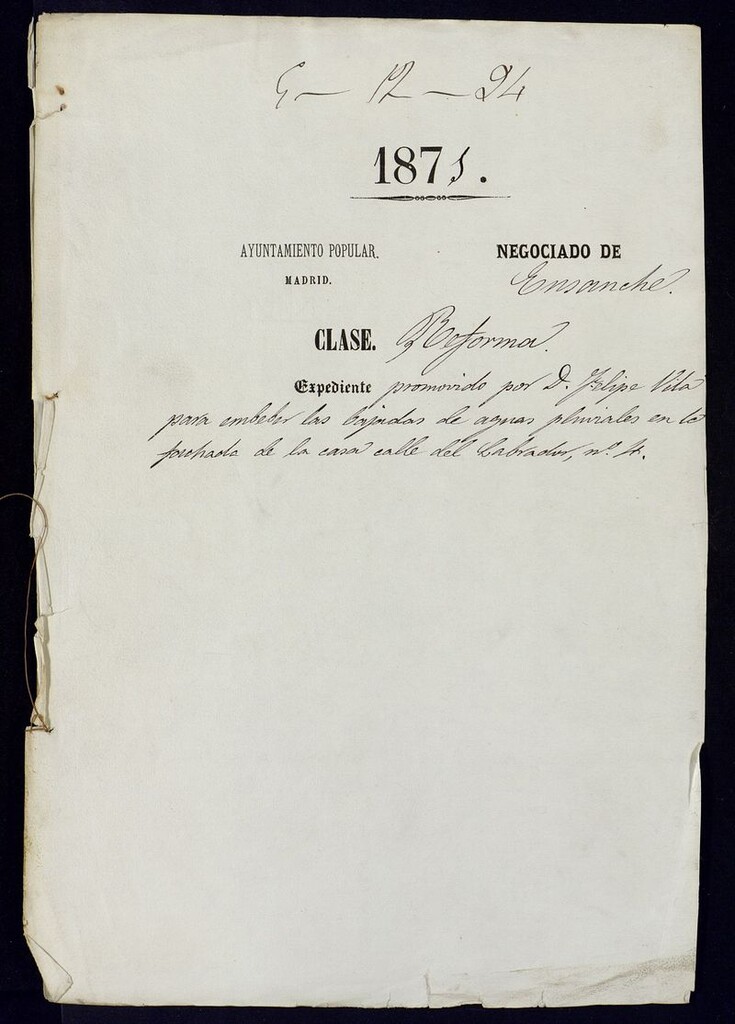 5 — 12 — 24
1871.
AYUNTAMIENTO POPULAR.
MADRID.
NEGOCIADO DE
Ensanche.
CLASE. Reforma.
Expediente promovido por D. Felipe Vila
para embeber las bajadas de aguas pluviales en la
fachada de la casa calle del Labrador, nº 4.